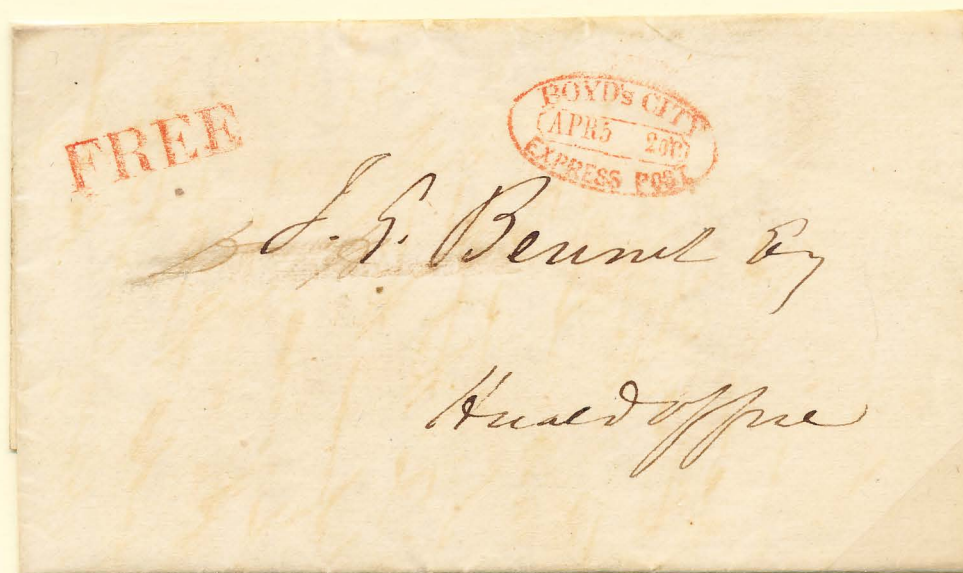 FREE
BOYD'S CITY
APR 5 2 o'C
EXPRESS POST
J. G. Bennet Esq
Herald Office